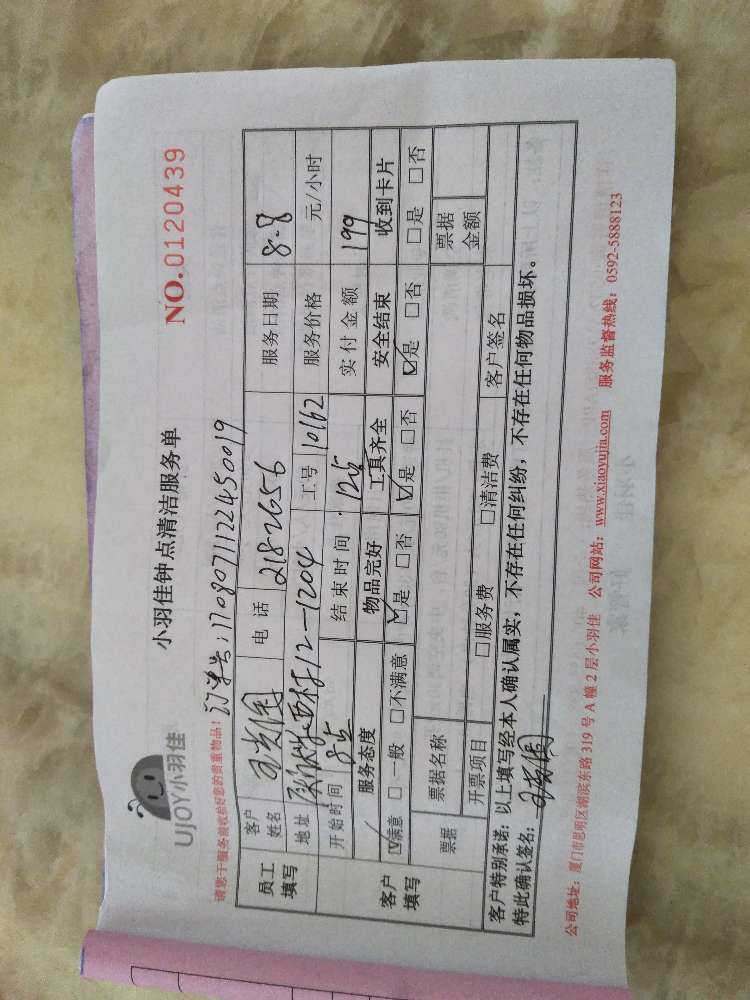 UJOY小羽佳
小羽佳钟点清洁服务单
NO.0120439
请您于服务前收拾好您的贵重物品!
订单号:1708071122450019
员工填写
客户姓名 电话 2182656 服务日期 8-8
地址 12-1204 工号 10162 服务价格 元/小时
开始时间 8点 结束时间 12点 实付金额 199
客户填写
服务态度 物品完好 工具齐全 安全结束 收到卡片
☑满意 □一般 □不满意 ☑是 □否 ☑是 □否 ☑是 □否 □是 □否
票据 票据名称 票据金额
开票项目 □服务费 □清洁费 客户签名
客户特别承诺:以上填写经本人确认属实,不存在任何纠纷,不存在任何物品损坏。
特此确认签名:
公司地址:厦门市思明区湖滨东路 319 号 A 幢 2 层小羽佳 公司网站:www.xiaoyujia.com 服务监督热线:0592-5888123